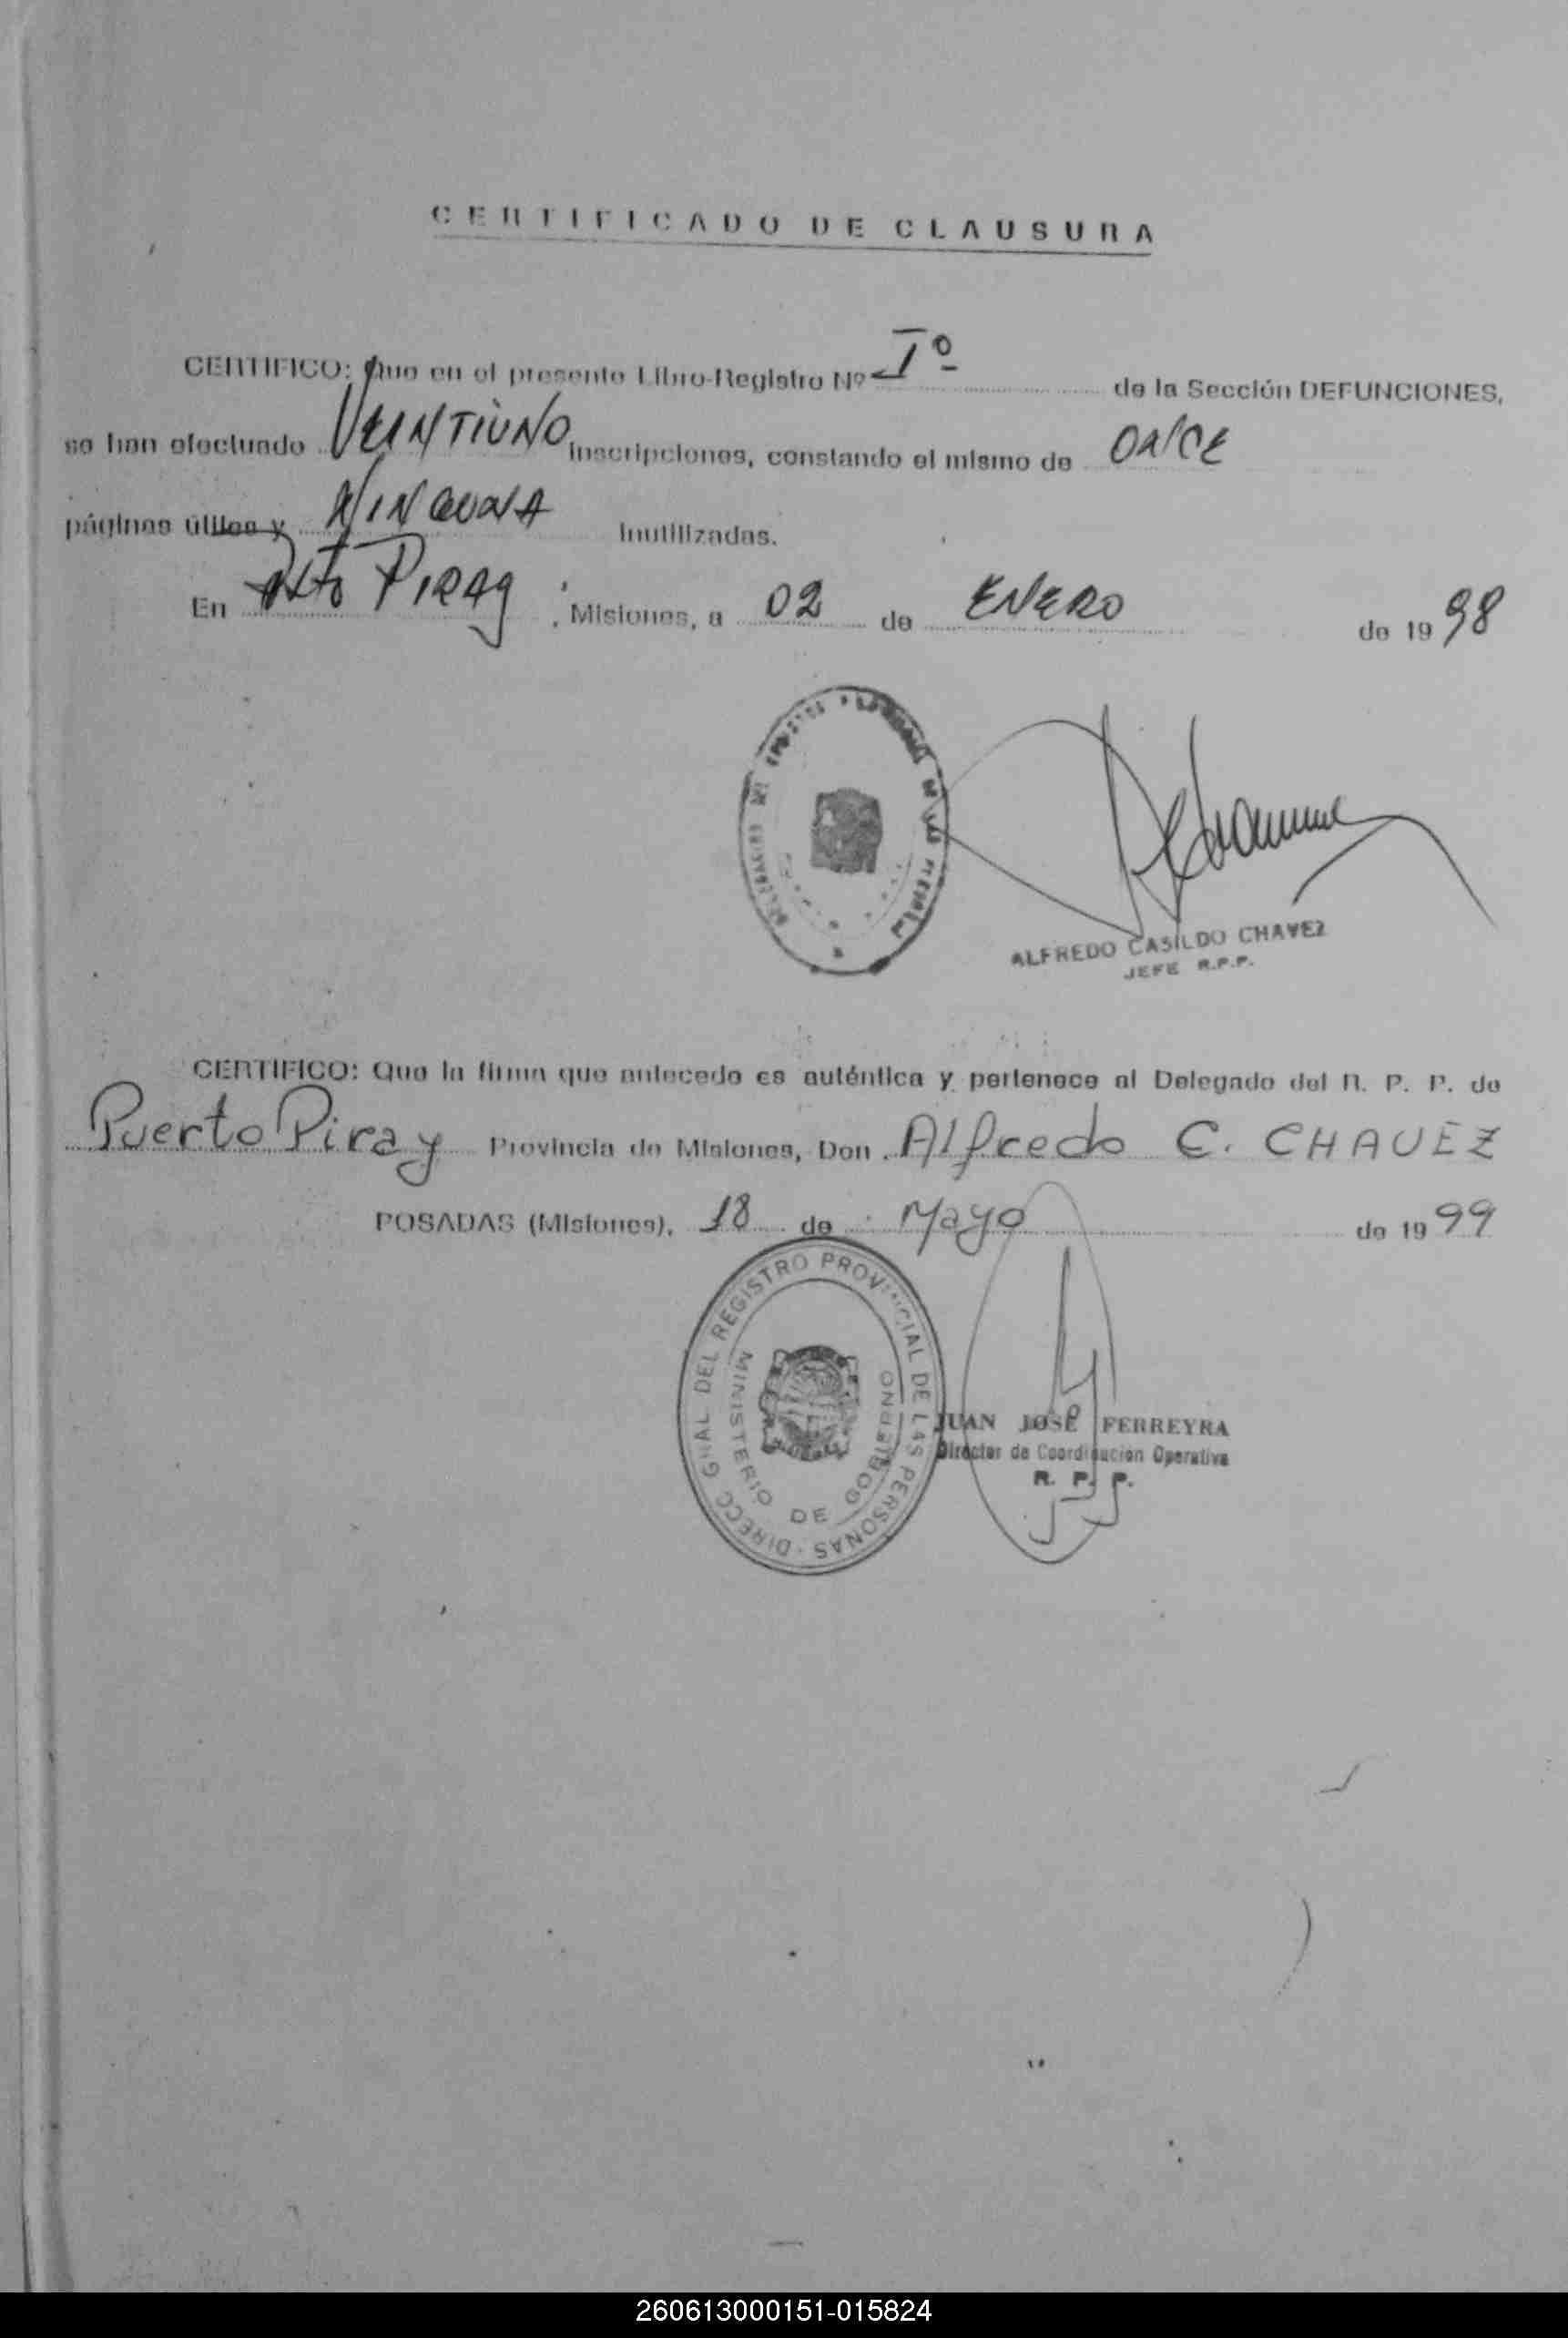 CERTIFICADO DE CLAUSURA
CERTIFICO: Que en el presente Libro-Registro Nº I º de la Sección DEFUNCIONES,
se han efectuado VEINTIUNO inscripciones, constando el mismo de ONCE
páginas útiles y NINGUNA inutilizadas.
En Pto PIRAY, Misiones, a 02 de ENERO de 1998
ALFREDO CASILDO CHAVEZ
JEFE R.P.P.
CERTIFICO: Que la firma que antecede es auténtica y pertenece al Delegado del R. P. P. de
Puerto Piray Provincia de Misiones, Don Alfredo C. CHAVEZ
POSADAS (Misiones), 18 de Mayo de 1999
DIRECC GRAL DEL REGISTRO PROVINCIAL DE LAS PERSONAS
MINISTERIO DE GOBIERNO
JUAN JOSE FERREYRA
Director de Coordinacion Operativa
R. P. P.
260613000151-015824